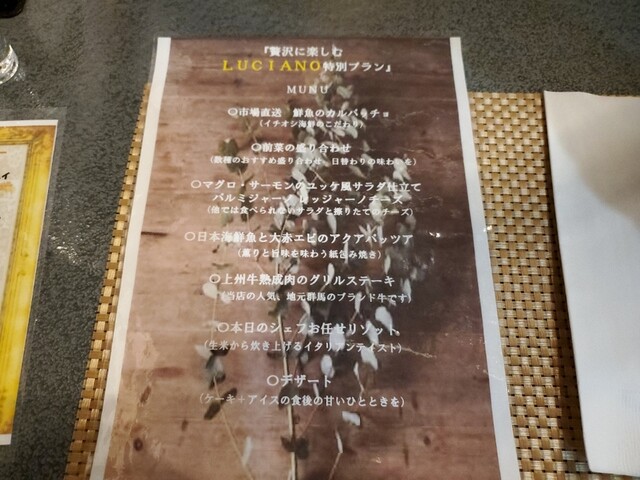 『贅沢に楽しむ
LUCIANO特別プラン』
MUNU
〇市場直送 鮮魚のカルパッチョ
（イチオシ海鮮のこだわり）
〇前菜の盛り合わせ
（数種のおすすめ盛り合わせ、日替わりの味わいを）
〇マグロ・サーモンのユッケ風サラダ仕立て
パルミジャーノレッジャーノチーズ
（他では食べられないサラダと擦りたてのチーズ）
〇日本海鮮魚と大赤エビのアクアパッツア
（薫りと旨味を味わう紙包み焼き）
〇上州牛熟成肉のグリルステーキ
（当店の人気、地元群馬のブランド牛です）
〇本日のシェフお任せリゾット
（生米から炊き上げるイタリアンテイスト）
〇デザート
（ケーキ＋アイスの食後の甘いひとときを）